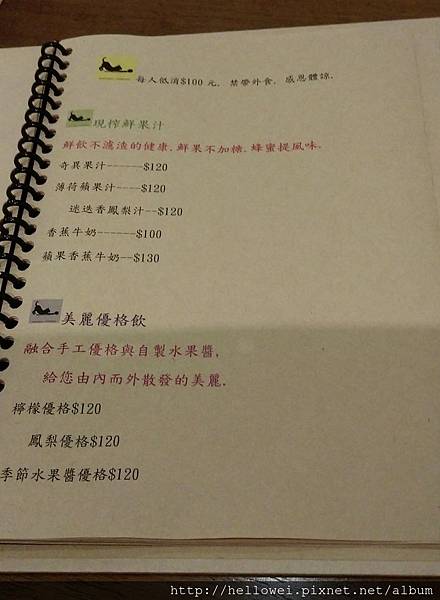 每人低消$100元. 禁帶外食. 感恩體諒.
現榨鮮果汁
鮮飲不濾渣的健康.鮮果不加糖.蜂蜜提風味.
奇異果汁------$120
薄荷蘋果汁----$120
迷迭香鳳梨汁--$120
香蕉牛奶------$100
蘋果香蕉牛奶--$130
美麗優格飲
融合手工優格與自製水果醬,
給您由內而外散發的美麗.
檸檬優格$120
鳳梨優格$120
季節水果醬優格$120
http://hellowei.pixnet.net/album